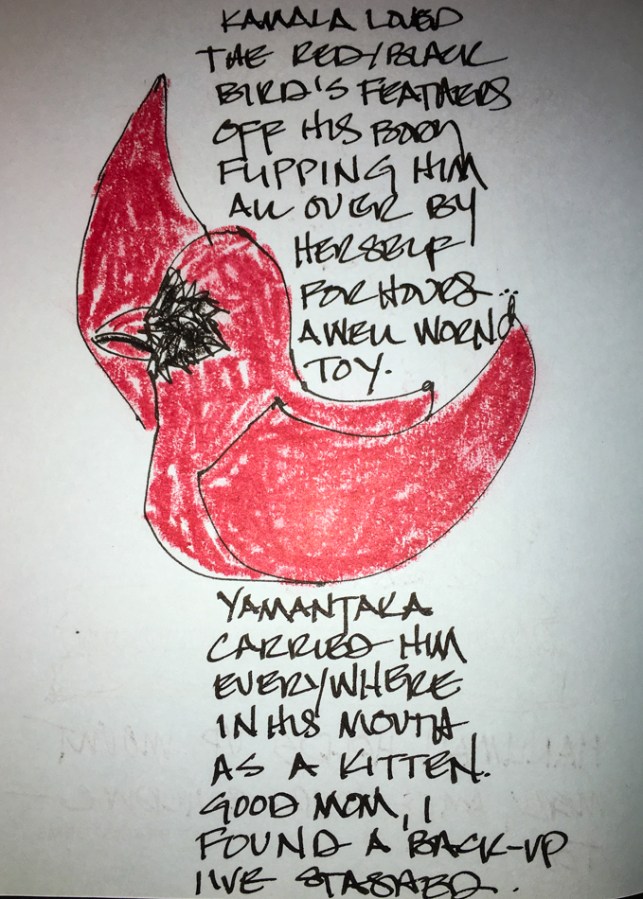 KAMALA LOVED
THE RED/BLACK
BIRD'S FEATHERS
OFF HIS BODY
FLIPPING HIM
ALL OVER BY
HERSELF
FOR HOURS...
A WELL WORN
TOY.
YAMANTAKA
CARRIED HIM
EVERYWHERE
IN HIS MOUTH
AS A KITTEN.
GOOD MOM, I
FOUND A BACK-UP
I'VE STASHED.